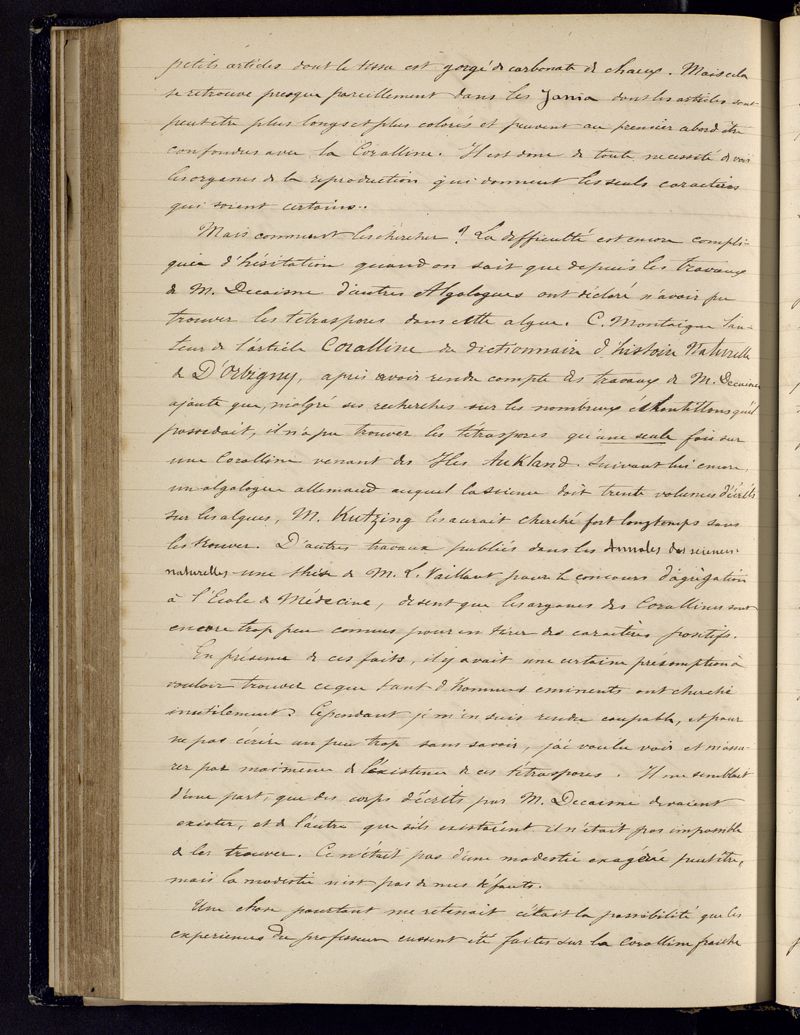 petits articles dont le tissu est gorgé de carbonate de chaux. Mais cela
se retrouve presque pareillement dans les Jania dont les articles sont
peut être plus longs et plus colorés et peuvent au premier abord être
confondus avec la Coralline. Il est donc de toute nécessité de voir
les organes de la reproduction qui donnent les seuls caractères
qui soient certains..
Mais comment les chercher ? La difficulté est encore compli-
quée d'hésitation quand on sait que depuis les travaux
de M. Decaisne d'autres Algologues ont déclaré n'avoir pu
trouver les tétraspores dans cette algue. C. Montaigne l'au-
teur de l'article Coralline du dictionnaire d'histoire Naturelle
de D'Orbigny, après avoir rendu compte des travaux de M. Decaisne
ajoute que, malgré ses recherches sur les nombreux échantillons qu'il
possédait, il n'a pu trouver les tétraspores qu'une seule fois sur
une Coralline venant des Iles Aukland. Suivant lui encore,
un algologue allemand auquel la science doit trente volumes d'écrits
sur les algues, M. Kutzing les aurait cherché fort longtemps sans
les trouver. D'autres travaux publiés dans les Annales des sciences
naturelles une thèse de M. L. Vaillant pour le concours d'agrégation
à l'Ecole de Médecine, disent que les organes des Corallines sont
encore trop peu connus pour en tirer des caractères positifs.
En présence de ces faits, il y avait une certaine présomption à
vouloir trouver ce que tant d'hommes eminents ont cherché
inutilement. Cependant je m'en suis rendu coupable, et pour
ne pas écrire un peu trop sans savoir, j'ai voulu voir et m'assu-
rer par moi même de l'éxistence de ces tétraspores. Il me semblait
d'une part, que des corps décrits par M. Decaisne devaient
exister, et de l'autre que s'ils existaient il n'était pas impossible
de les trouver. Ce n'était pas d'une modestie exagérée peut être,
mais la modestie n'est pas de mes défauts.
Une chose pourtant me retenait c'était la possibilité que les
experiences du professeur eussent été faites sur la coralline fraiche